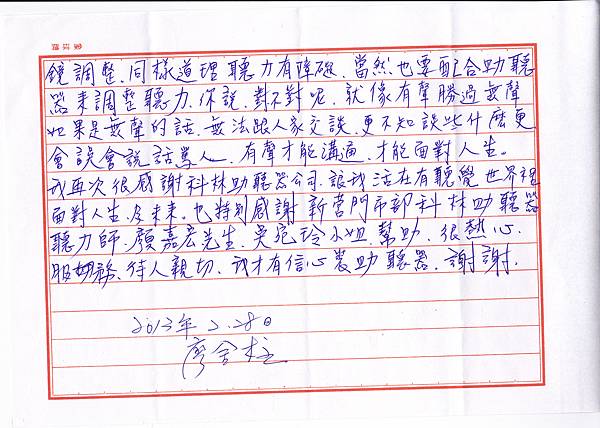 鏡調整、同樣道理聽力有障礙、當然也要配合助聽
器來調整聽力、你說、對不對呢、就像有聲勝過無聲
如果是無聲的話、無法跟人家交談、更不知談些什麼更
會誤會說話罵人、有聲才能溝通、才能面對人生。
我再次很感謝科林助聽器公司、讓我活在有聽覺世界裡
面對人生、及未來。也特別感謝新營門市部科林助聽器
聽力師、顏嘉宏先生、吳宛玲小姐、幫助、很熱心、
服務、待人親切、我才有信心裝助聽器、謝謝.
2013年 2.28日
廖 柱